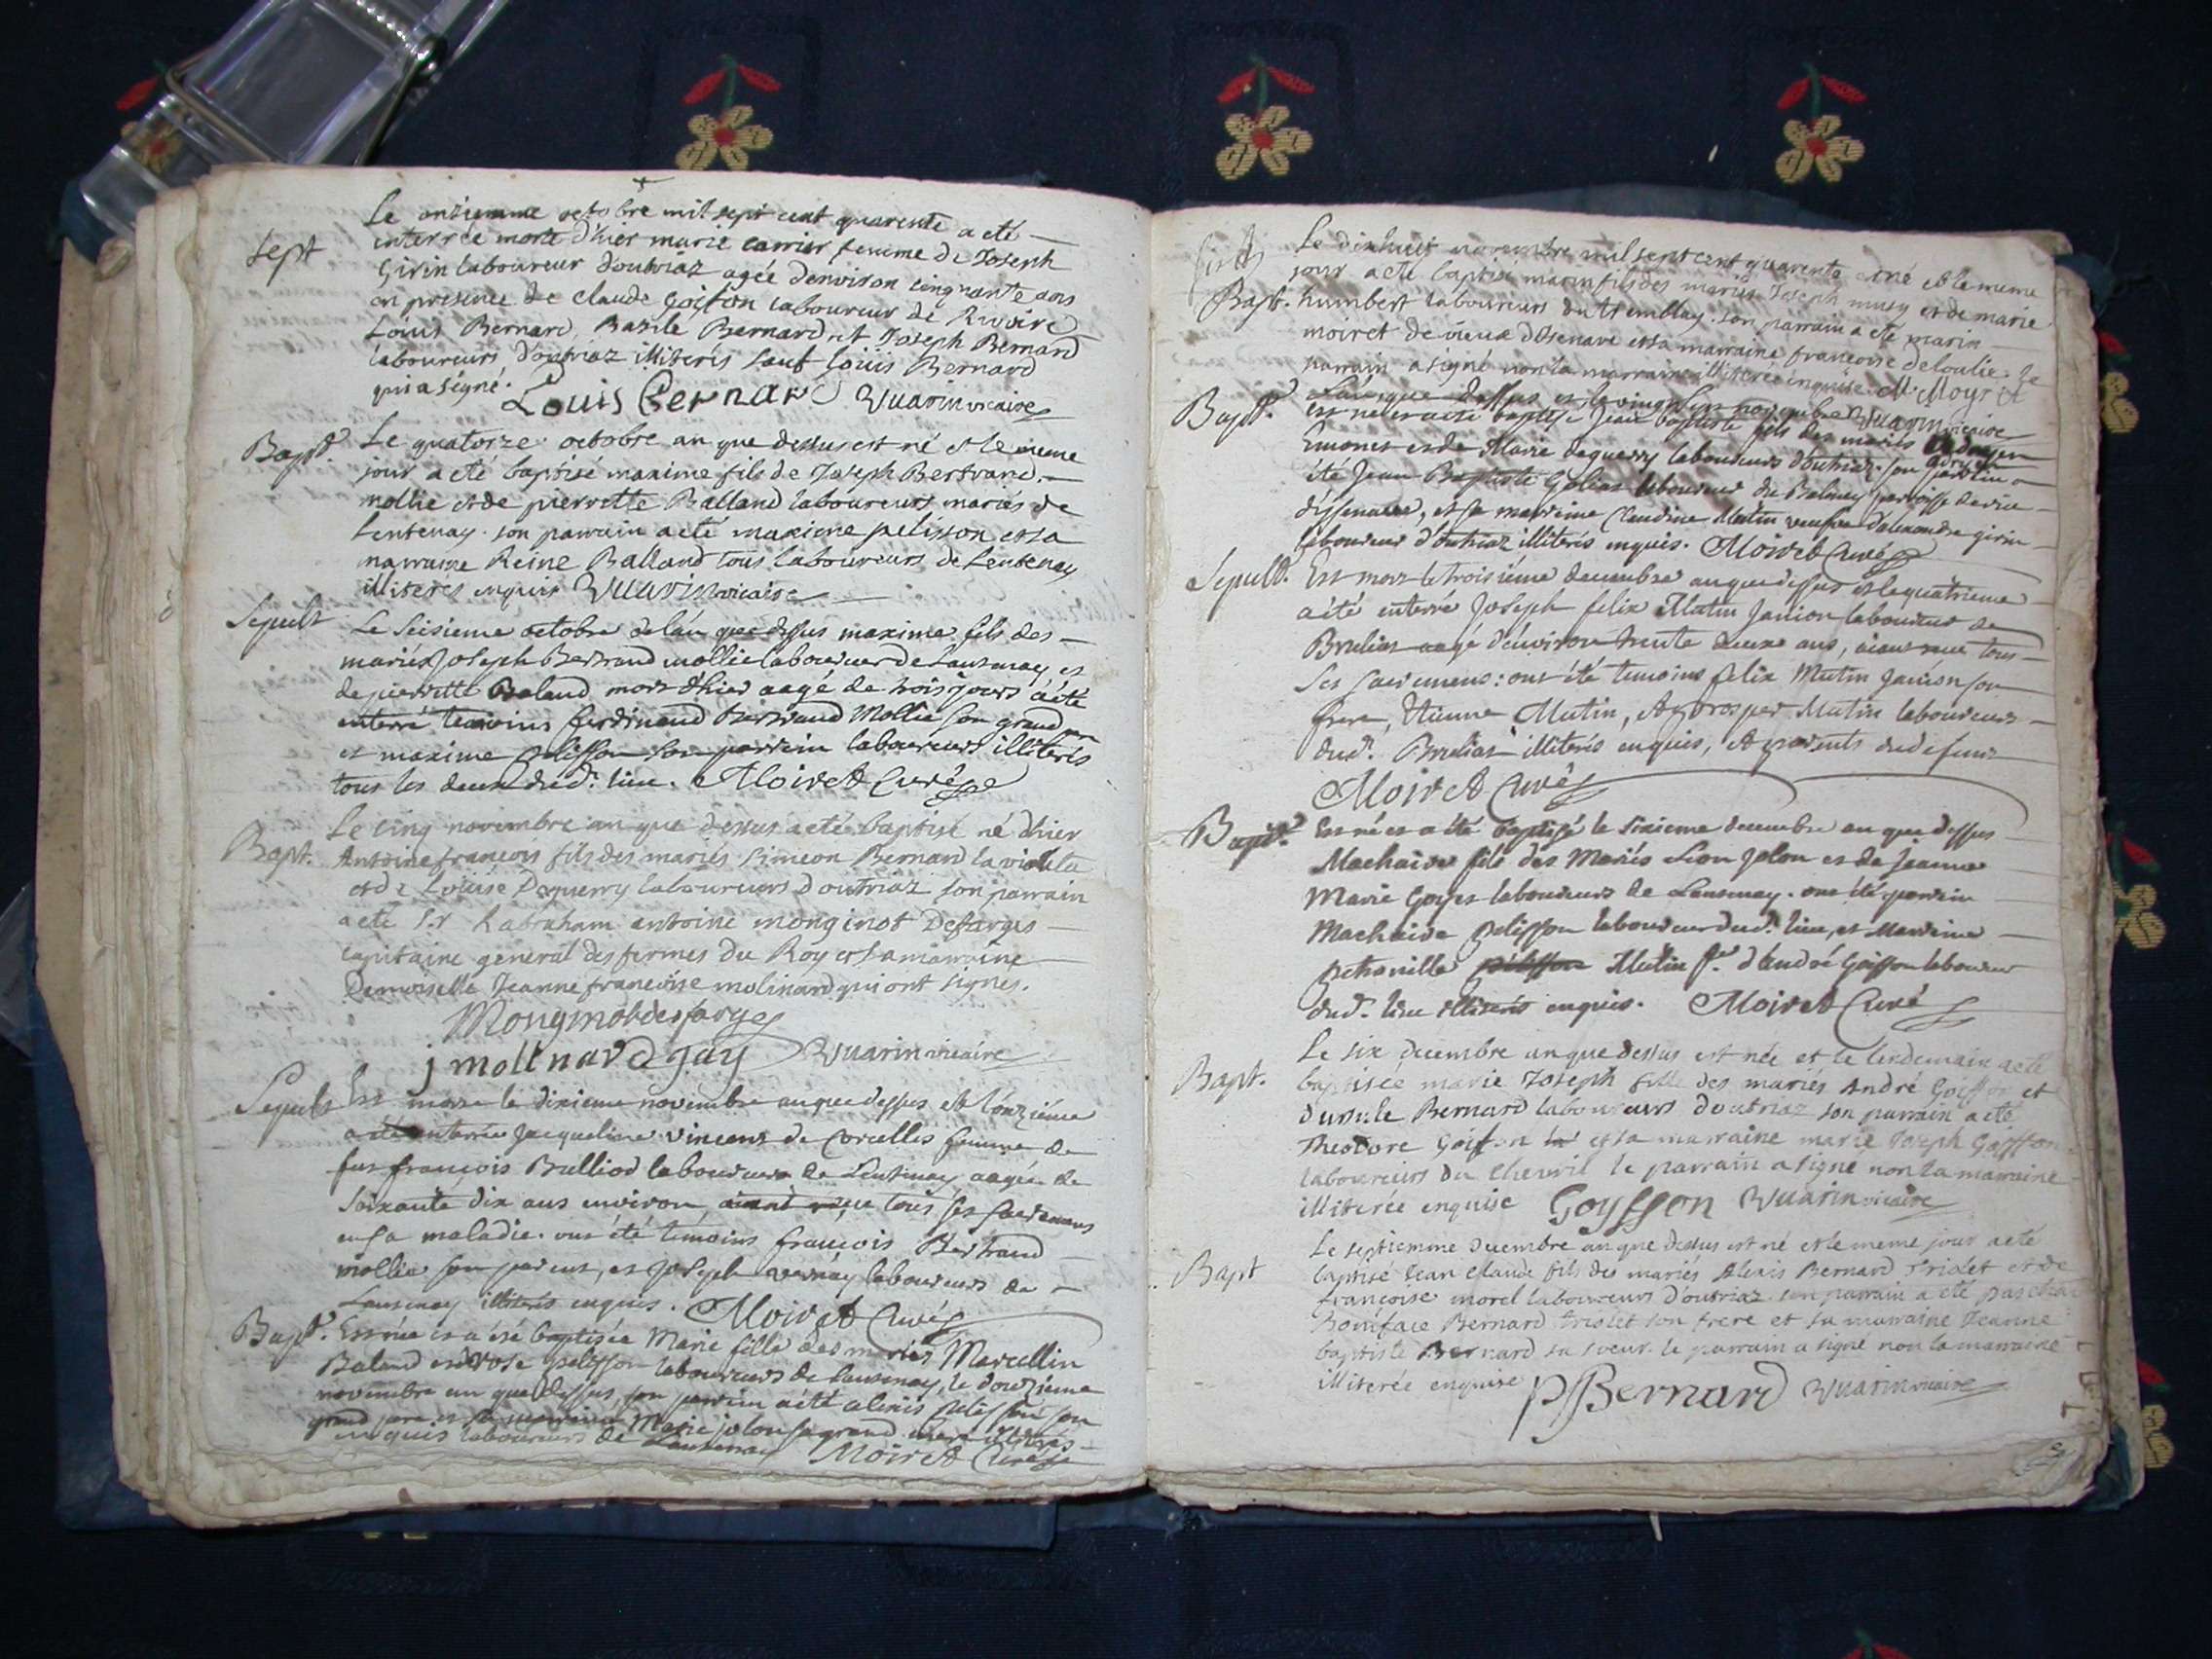 Le onziemme octobre mil sept cent quarente a eté
sept
interrée morte d'hier marie carrier femme de Joseph
Girin laboureur d'outriaz agée denviron cinquante ans
en presence de claude Goiffon laboureur de Rivoire
Louis Bernard, Bazile Bernard et Joseph Bernard
laboureurs d'outriaz illiterés sauf Louis Bernard
qui a signé. Louis Bernard Vuarin vicaire
Bapt
Le quatorze octobre an que dessus est né et le meme
jour a eté baptisé maxime fils de Joseph Bertrand
mollie et de pierrette Balland laboureurs mariés de
Lentenay. son parrain a eté maxime pelisson et sa
marraine Reine Balland tous laboureurs de Lentenay
illiterés enquis Vuarin vicaire
Sepult
Le seisieme octobre de l'an que dessus maxime fils des
mariés Joseph Bertrand mollie laboureur de Lantenay et
de pierrette Baland mort d'hier aagé de trois jours a été
enterré temoins ferdinand Bertrand Mollie son grand pere
et maxime pelisson son parrein laboureurs illiterés
tous les deux dud. lieu. Moiret Curé
Bapt.
Le cinq novembre an que dessus a eté baptisé né d'hier
Antoine francois fils des mariés Simeon Bernard la violette
et de Louise Dequerry laboureurs d'outriaz son parrain
a eté Sr habraham antoine monginot Desfarges
capitaine general des fermes du Roy et sa marraine
Demoiselle Jeanne francoise molinard qui ont signés.
Monginot desfarges
j molinard gay Vuarin vicaire
Sepult
Est morte le dixieme novembre an que dessus et l'onzième
a été enterrée Jacqueline vincent de Corcelles femme de
fut françois Bulliod laboureur de Lentenay aagée de
soixante dix ans environ, aiant reçue tous ses sacremens
en sa maladie. ont été témoins françois Bertrand
mollie son parent, et Joseph vernay laboureurs de
Lantenay illiterés enquis. Moiret Curé
Bapt.
Est née et a été baptisée Marie fille des mariés Marcellin
Baland et de rose pelisson laboureurs de lantenay, le douzieme
novembre an que dessus, son parrein a été alexis pelisson son
grand pere et sa marraine Marie jolon sa grand mere illiterés
enquis laboureurs de Lantenay Moiret Curé
Le dixhuit novembre mil sept cent quarente est né et le meme
Bapt.
jour a eté baptisé marin fils des mariés Joseph musy et de marie
humbert laboureurs du tremblay. son parrain a eté marin
moiret de vieux d'Isenave et sa marraine francoise deloulie. le
parrain a signé non la marraine illiterée enquise. M. Moyret
Vuarin vicaire
Bapt.
L'an que dessus et le vingt sept novembre
est né et a été baptisé Jean baptiste fils des mariés
Emonet et de Marie dequerry laboureurs d'outriaz. son parrein a
été Jean Baptiste Golias laboureur du Balmey parroisse de vieu
d'issenave, et sa marreine Claudine Mutin veufve d'alexandre girin
laboureur d'outriaz illiterés enquis. Moiret Curé
Sepult.
Est mort le troisième decembre an que dessus et le quatrieme
a été enterré Joseph felix Mutin Janion laboureur de
Brulias aagé d'environ trente deux ans, aiant reçu tous
ses sacremens: ont été temoins felix Mutin Janion son
frere, Etienne Mutin, et prosper Mutin laboureurs
dud. Brulias illiterés enquis, et parents du defunt
Moiret Curé
Bapt.
Est né et a été baptisé le sixieme decembre an que dessus
Machaire fils des Mariés Lion Jolon et de jeanne
Marie Goyet laboureurs de Lantenay. ont été parrein
Machaire pelisson laboureur dud. lieu, et Marreine
petronille pelisson Mutin fe. d'André Goiffon laboureur
dud. lieu illiterés enquis. Moiret Curé
Bapt.
Le six decembre an que dessus est née et le lendemain a eté
baptisée marie Joseph fille des mariés André Goiffon et
d'ursule Bernard laboureurs d'outriaz son parrain a eté
Theodore Goiffon et sa marraine marie Joseph Goiffon
laboureurs du Chevril le parrain a signé non la marraine
illiterée enquise Goyffon Vuarin vicaire
Bapt
Le septiemme decembre an que dessus est né et le meme jour a eté
baptisé Jean Claude fils des mariés Alexis Bernard triolet et de
françoise morel laboureurs d'outriaz. son parrain a eté paschal
Boniface Bernard triolet son frere et sa marraine Jeanne
baptiste Bernard sa soeur. le parrain a signé non la marraine
illiterée enquise PBernard Vuarin vicaire